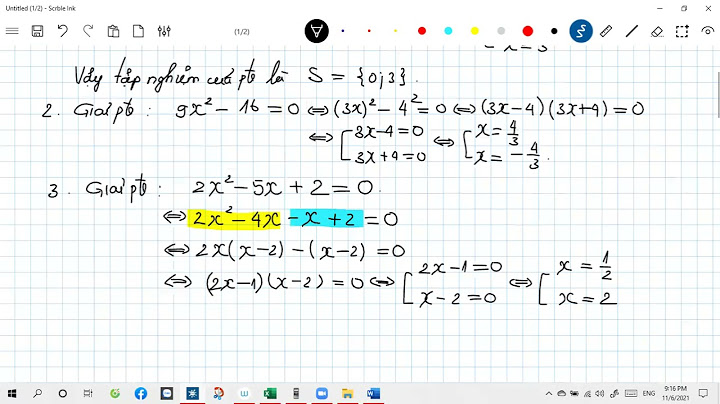 Untitled (1/2) - Scrble Ink
(1/2)
Vậy tập nghiệm của pt là S = {0;3}.
2. Giải pt: 9x² - 16 = 0 ⇔ (3x)² - 4² = 0 ⇔ (3x-4)(3x+4) = 0
⇔ [ 3x-4=0 ⇔ [ x = 4/3
3x+4=0 x = -4/3.
3. Giải pt: 2x² - 5x + 2 = 0.
⇔ 2x² - 4x - x + 2 = 0
⇔ 2x(x-2) - (x-2) = 0
⇔ (2x-1)(x-2) = 0 ⇔ [ 2x-1=0 ⇔ [ x = 1/2
x-2=0 x = 2
ENG
9:16 PM
11/6/2021